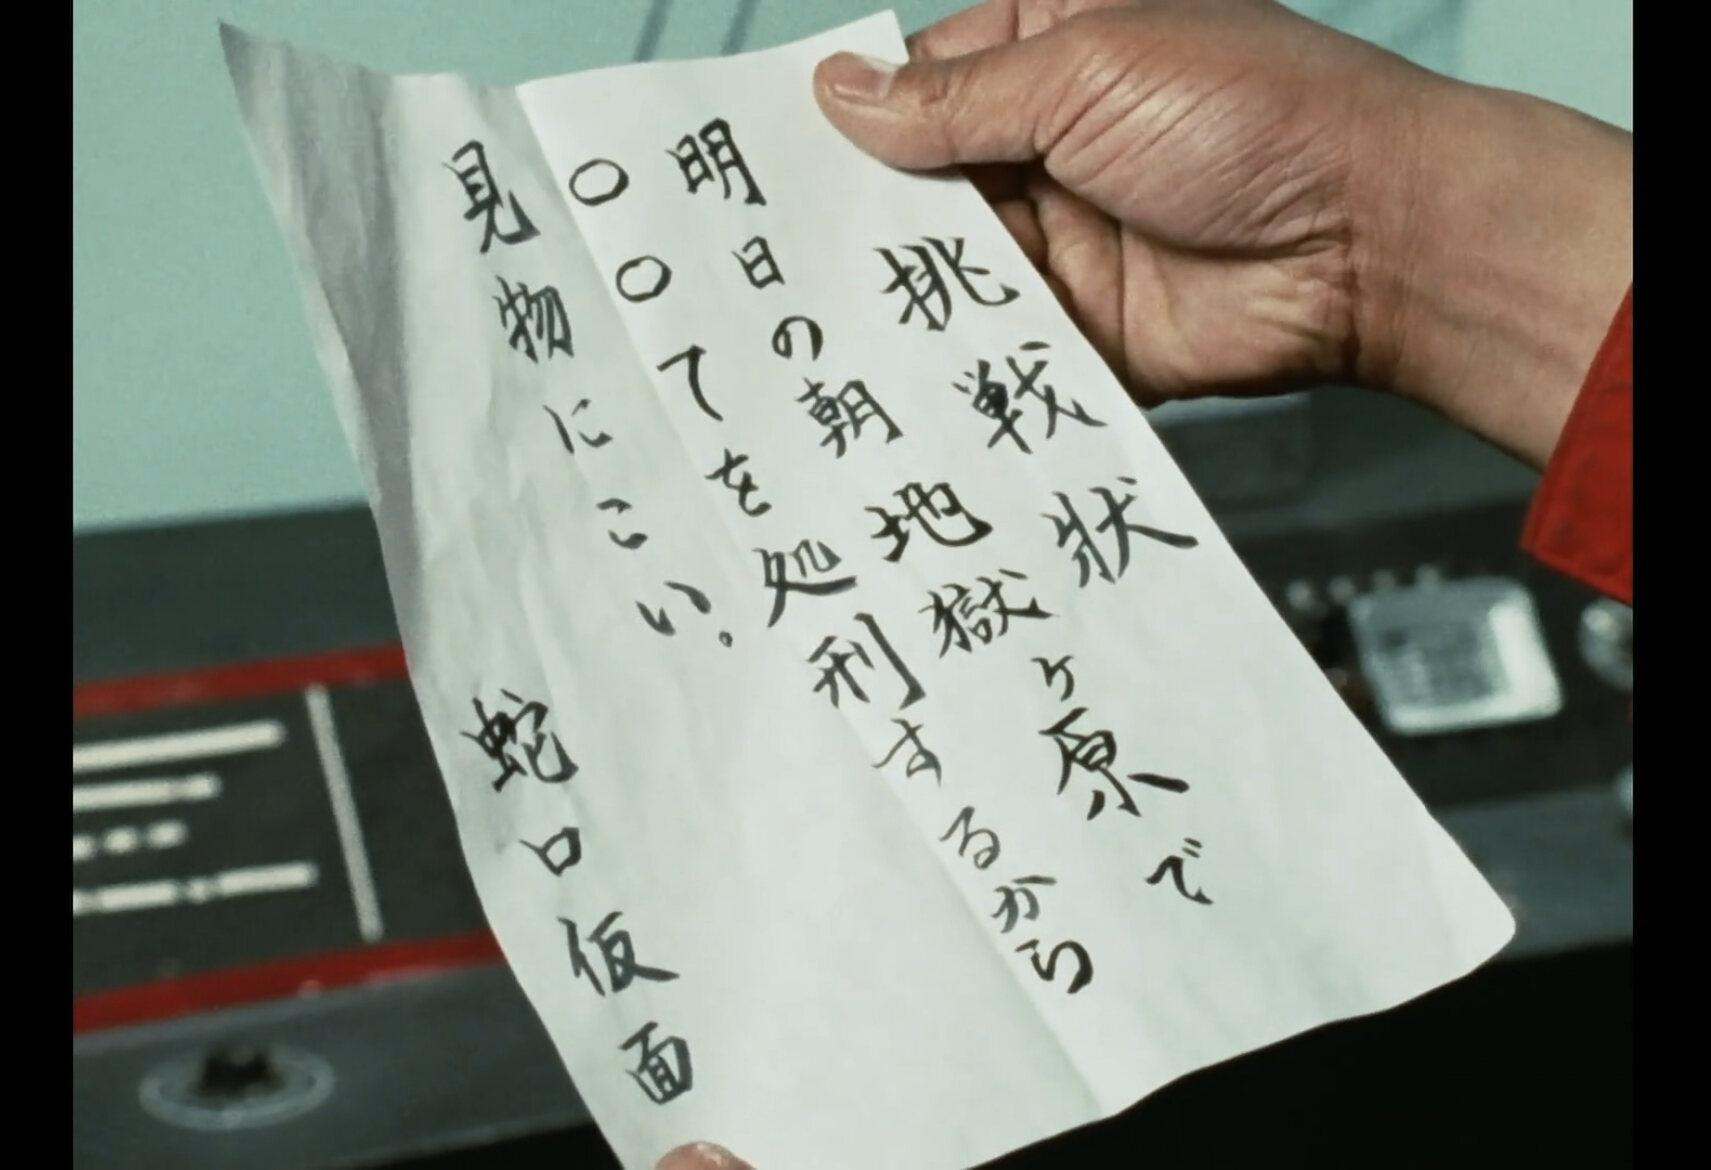 挑戦状
明日の朝地獄ヶ原で
〇〇てを処刑するから
見物にこい。
蛇口仮面